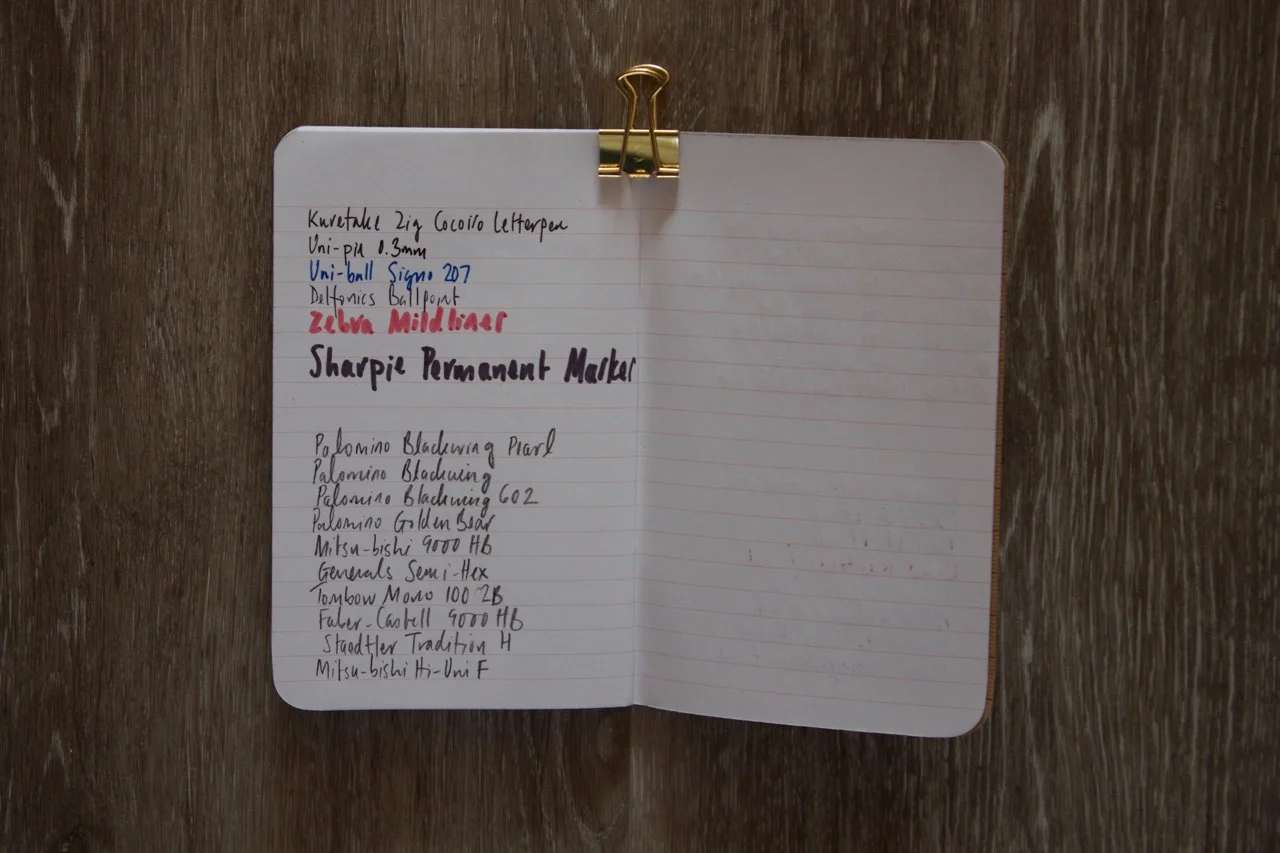 Kuretake Zig Cocoiro Letterpen
Uni-pin 0.3mm
Uni-ball Signo 207
Delfonics Ballpoint
Zebra Mildliner
Sharpie Permanent Marker
Palomino Blackwing Pearl
Palomino Blackwing
Palomino Blackwing 602
Palomino Golden Bear
Mitsu-bishi 9000 HB
Generals Semi-Hex
Tombow Mono 100 2B
Faber-Castell 9000 HB
Staedtler Tradition H
Mitsu-bishi Hi-Uni F